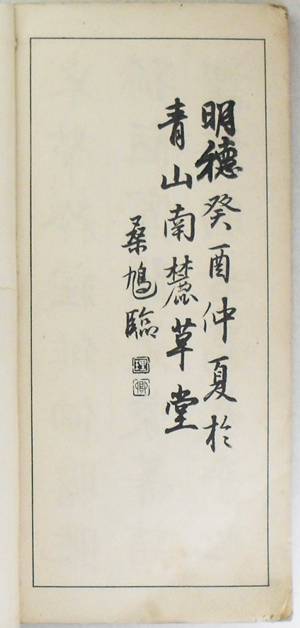 明德癸酉仲夏於
青山南麓草堂
桑鳩臨